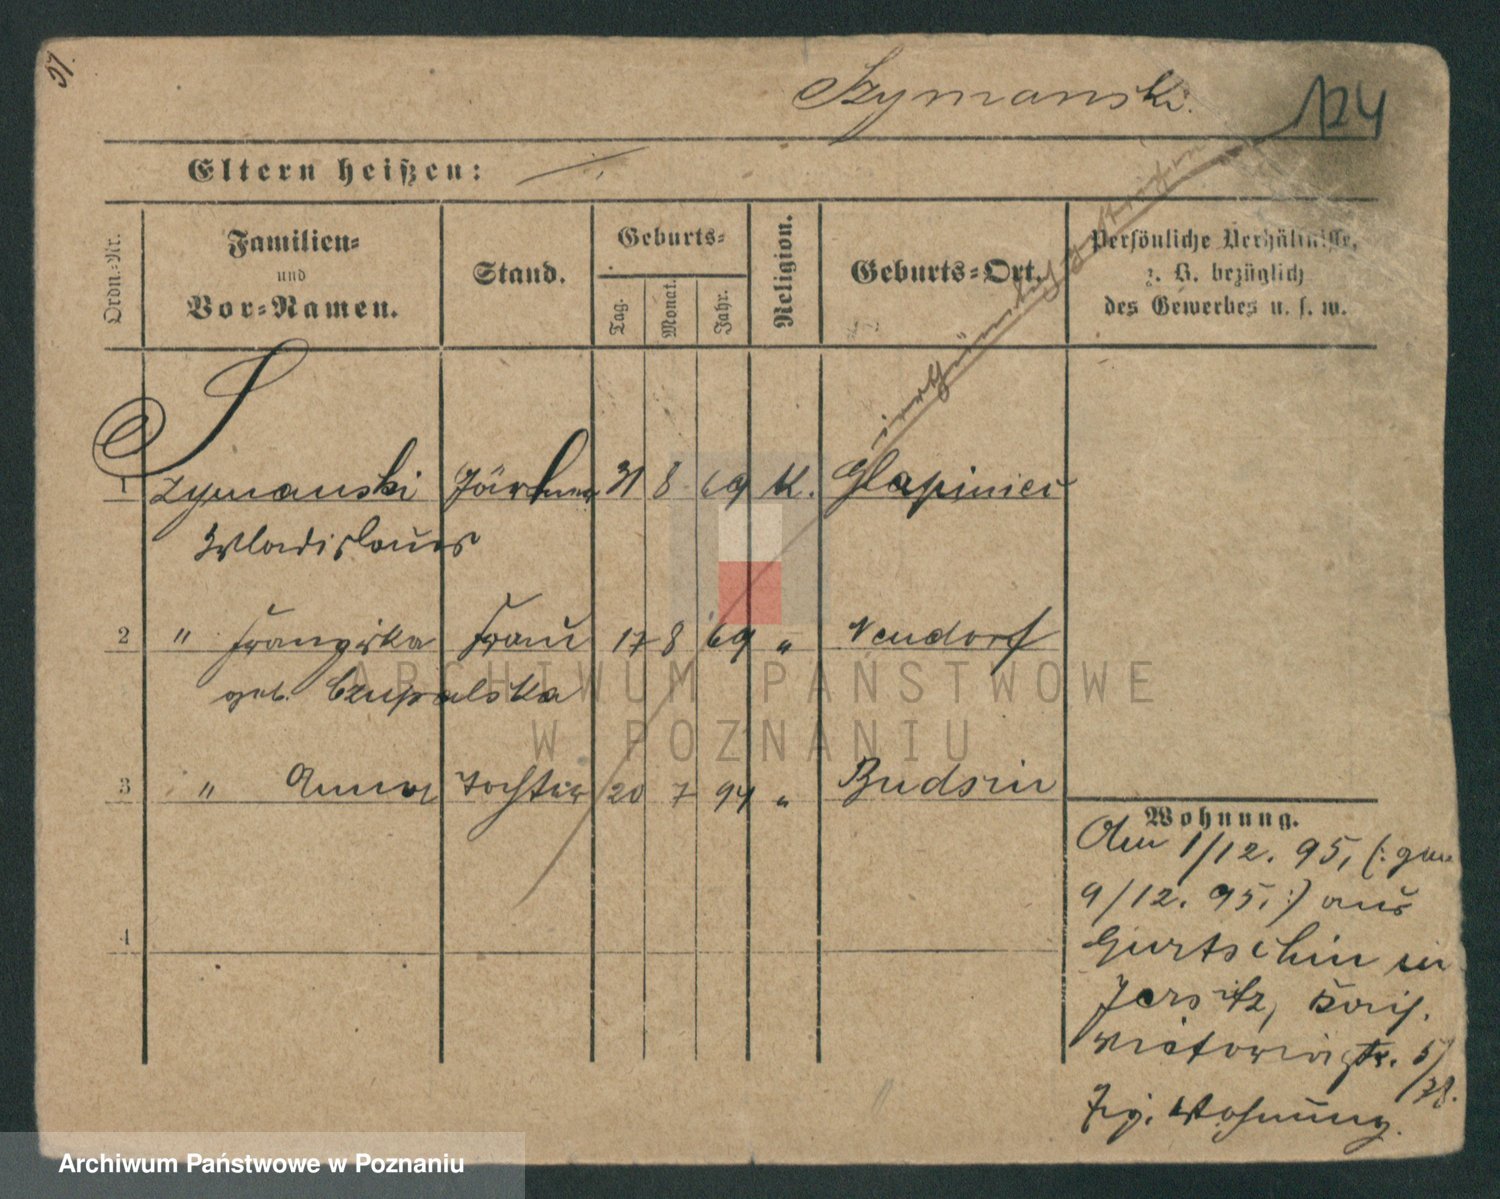 Szymanski.
124
Eltern heißen:
Ordn.-Nr.
Familien-
und
Vor-Namen.
Stand.
Geburts-
Tag.
Monat.
Jahr.
Religion.
Geburts-Ort.
Persönliche Verhältnisse,
z. B. bezüglich
des Gewerbes u. s. w.
irrthümlich
1 Szymanski 31 8 69 K. Glapiniec
Wladislaus
2 " Franziska Frau 17 8 69 " Neudorf
geb. Czupalska
3 " Anna Tochter 20 7 94 " Budsin
4
Wohnung.
Am 1/12. 95, (: gem
9/12. 95, :) aus
Gurtschin in
Jersitz, Kais.
Victoriastr. 5/
78.
Wohnung.
ARCHIWUM PAŃSTWOWE
W POZNANIU
Archiwum Państwowe w Poznaniu